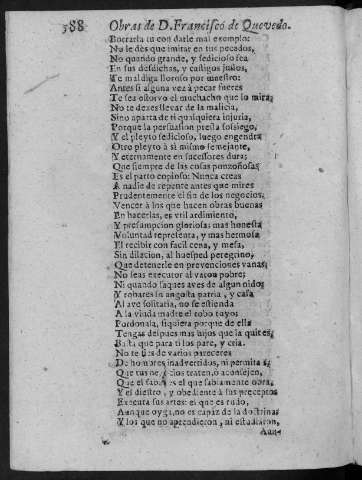 588 Obras de D. Francisco de Quevedo.
Borrarla tu con darle mal exemplo:
No le dès que imitar en tus pecados,
No quando grande, y sedicioso sea
En sus desdichas, y castigos justos,
Te maldiga lloroso por maestro:
Antes si alguna vez à pecar fueres
Te sea estorvo el muchacho que lo mira,
No te dexes llevar de la malicia,
Sino aparta de ti qualquiera injuria,
Porque la persuasion presta sosiego,
Y el pleyto sedicioso, luego engendra
Otro pleyto à si mismo semejante,
Y eternamente en sucessores dura;
Que siempre de las cosas ponzoñosas
Es el parto copioso: Nunca creas
A nadie de repente antes que mires
Prudentemente el fin de los negocios,
Vencer à los que hacen obras buenas
En hacerlas, es vril ardimiento,
Y presumpcion gloriosa; mas honesta
Voluntad representa, y mas hermosa
El recibir con facil cena, y mesa,
Sin dilacion, al huesped peregrino,
Que detenerle en prevenciones vanas;
No seas executor al varon pobre;
Ni quando saques aves de algun nido;
Y robares su angosta patria, y casa
Al ave solitaria, no se estienda
A la viuda madre el robo tuyo:
Perdonala, siquiera porque de ella
Tengas despues mas hijos que la quites;
Basta que para ti los pare, y cria.
No te fies de varios pareceres
De hombres inadvertidos, ni permitas
Que tus negocios traten, ò aconsejen,
Que el sabio es el que sabiamente obra,
Y el diestro, y obediente à sus preceptos
Executa sus artes: el que es rudo,
Aunque oyga, no es capaz de la doctrina;
Y los que no aprendieron, ni estudiaron,
Aun-